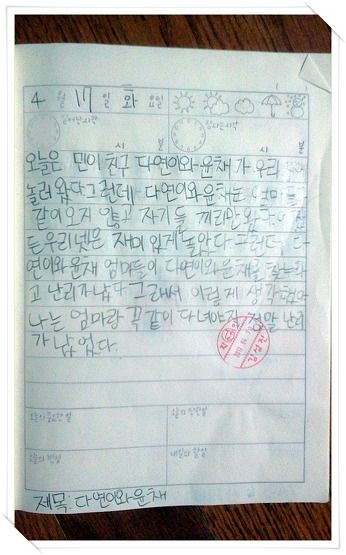 4 월 17 일 화 요일
일어난시각
시 분
시 분
오늘은 민이 친구 다연이와 윤채가 우리
놀러 왔다그런데 다연이와 윤채는 엄마
같이오지 않고 자기들 끼리만 왔다
든우리넷은 재미 있게 놀았다 그런데, 다
연이와윤채 엄마들이 다연이와윤채를 찾느라
고 난리가 났다 그래서 이렇게 생각했
나는 엄마랑 꼭 같이 다녀야지 정말 난리
가 났었다.
김성진
오늘의 중요한 일
오늘의 착한 일
오늘의 반성
내일의 할 일
제목: 다연이와 윤채